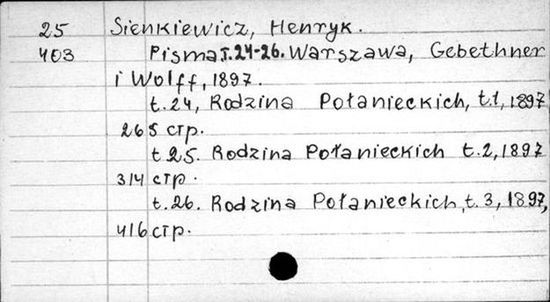 25 Sienkiewicz, Henryk.
403 Pisma T.24-26. Warszawa, Gebethner
i Wolff, 1897.
t.24, Rodzina Połanieckich, t.1, 1897
265 стр.
t.25. Rodzina Połanieckich t.2, 1897
314 стр.
t.26. Rodzina Połanieckich, t.3, 1897,
416 стр.